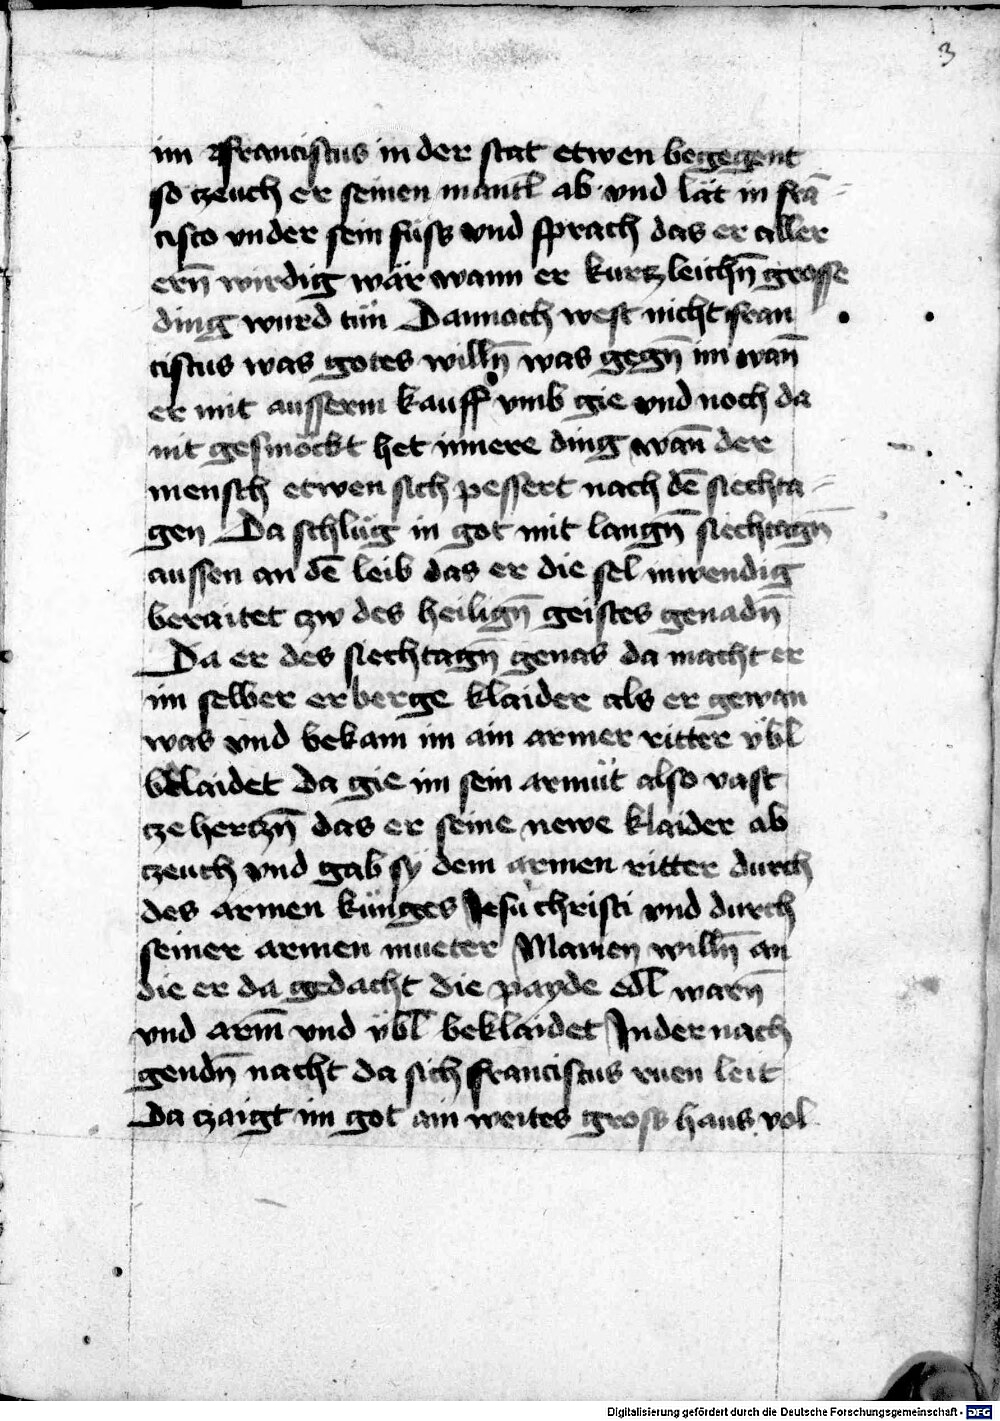 3
im Franciscus in der stat etwen begegent
so czeuch er seinen mantl ab vnd lät in frā=
cisco vnder sein füss vnd sprach das er aller
ern̄ wirdig wär wann er kurtzleichn̄ grosse
ding wurd tün Dannoch west nicht fran
ciscus was gotes willn̄ was gegn̄ im wan̄
er mit ausserm kauff vmb gie vnd noch da
nit gesmöckt het innere ding wan̄ der
mensch etwen sich pessert nach dē siechta=
gen Da schlüg in got mit langn̄ siechtagn̄
aussen an dē leib das er die sel inwendig
beraitet czw des heilign̄ geistes genadn̄
Da er des siechtagn̄ genas da macht er
im selber erberge klaider als er gewan
was vnd bekam im ain armer ritter vbl
beklaidet Da gie im sein armüt also vast
cze hertzn̄ das er seine newe klaider ab
czeuch vnd gab sy dem armen ritter durch
des armen künges Jesu christi vnd durch
seiner armen mueter Marien willn̄ an
die er da gedacht die payde edl warn̄
vnd arm̄ vnd vbl beklaidet In der nach
gendn̄ nacht da sich franciscus ruen leit
Da czaigt im got ain weites gross haus vol
Digitalisierung gefördert durch die Deutsche Forschungsgemeinschaft - DFG